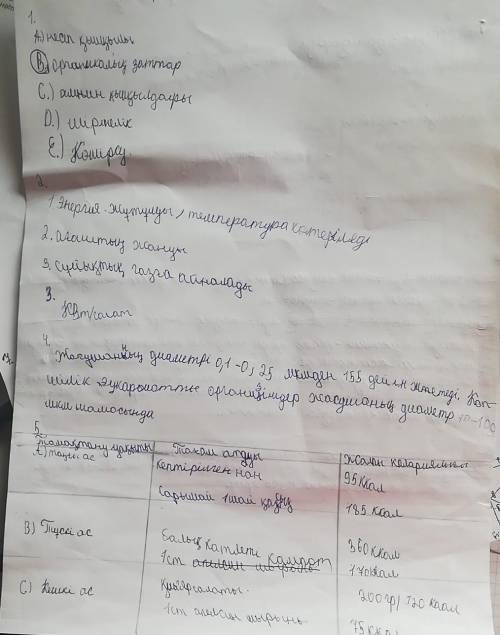 1.
А) несеп қышқылы
В) органикалық заттар
С.) амин қышқылдары
D.) шірінелік
Е.) Көмірсу
2.
1 Энергия жұтылды, температура көтеріледі
2. ағаштың жануы
3. сұйықтық газға айналады
3.
КВт/сағат
4.
Жасушаның диаметрі 0,1-0,25 мкмден 155 дейін жетеді. Көп-
шілік эукариотты организмдер жасушаның диаметр 10-100
мкм шамасында
5.
тамақтану уақыты Тағам алдуы Жалпы калариялығы
А) таңғы ас Кептірілген нан 95 Ккал
Сарымай 1 шай қасық 185 Ккал
В) Түскі ас Балық котлеті 360 ккал
1 ст компот 170 ккал
С) Кешкі ас Қияр салаты 200 гр/ 120 Ккал
1 ст апельсин шырыны 75 ккал